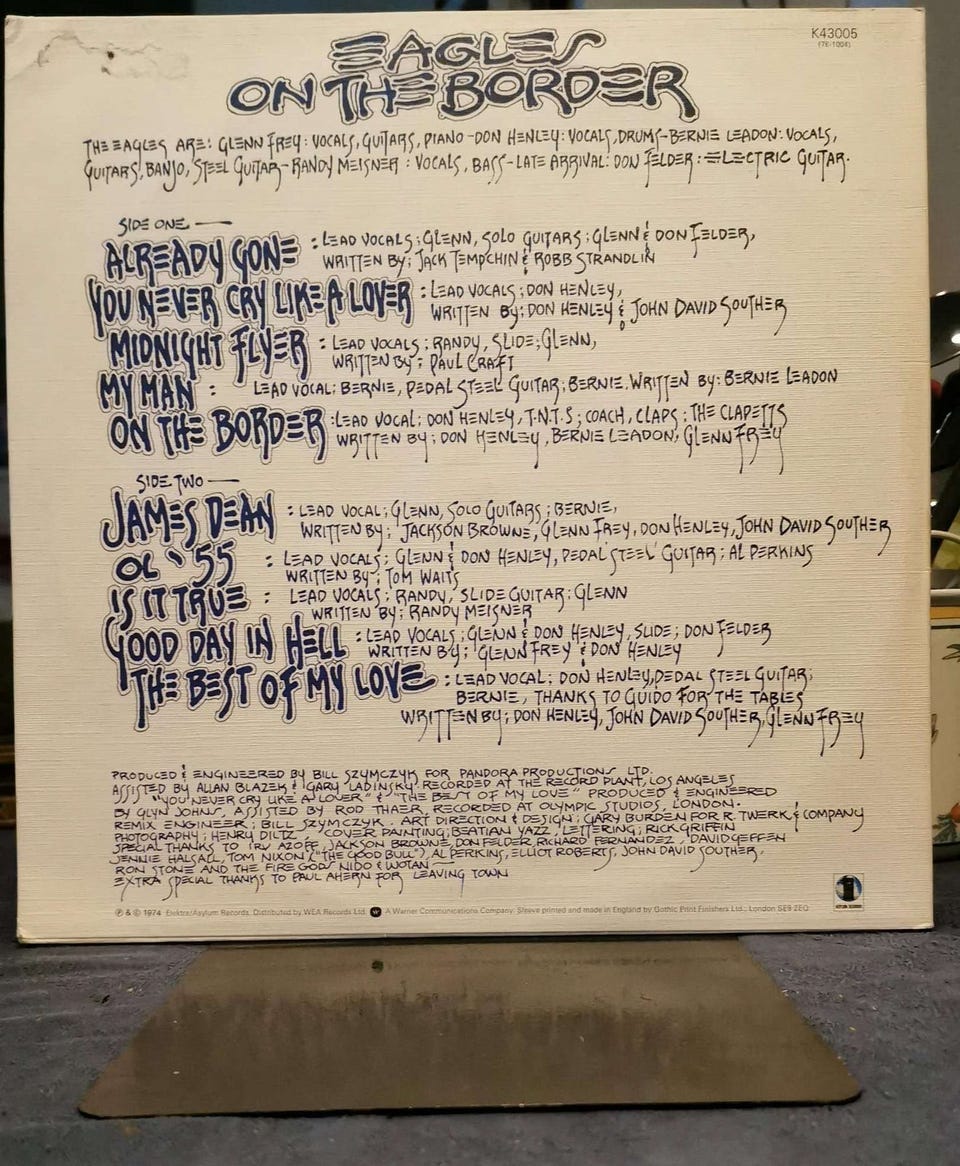 EAGLES
ON THE BORDER
K43005
(7E-1004)
THE EAGLES ARE: GLENN FREY: VOCALS, GUITARS, PIANO - DON HENLEY: VOCALS, DRUMS - BERNIE LEADON: VOCALS,
GUITARS, BANJO, STEEL GUITAR - RANDY MEISNER : VOCALS, BASS - LATE ARRIVAL: DON FELDER: ELECTRIC GUITAR.
SIDE ONE —
ALREADY GONE : LEAD VOCALS; GLENN, SOLO GUITARS; GLENN & DON FELDER,
WRITTEN BY; JACK TEMPCHIN & ROBB STRANDLIN
YOU NEVER CRY LIKE A LOVER : LEAD VOCALS; DON HENLEY,
WRITTEN BY; DON HENLEY & JOHN DAVID SOUTHER
MIDNIGHT FLYER : LEAD VOCALS; RANDY, SLIDE; GLENN,
WRITTEN BY; PAUL CRAFT
MY MAN : LEAD VOCAL: BERNIE, PEDAL STEEL GUITAR; BERNIE, WRITTEN BY: BERNIE LEADON
ON THE BORDER : LEAD VOCAL: DON HENLEY, T.N.T.S; COACH, CLAPS; THE CLAPETTS
WRITTEN BY; DON HENLEY, BERNIE LEADON, GLENN FREY
SIDE TWO —
JAMES DEAN : LEAD VOCAL; GLENN, SOLO GUITARS; BERNIE,
WRITTEN BY; JACKSON BROWNE, GLENN FREY, DON HENLEY, JOHN DAVID SOUTHER
OL '55 : LEAD VOCALS; GLENN & DON HENLEY, PEDAL STEEL GUITAR; AL PERKINS
WRITTEN BY; TOM WAITS
IS IT TRUE : LEAD VOCALS; RANDY, SLIDE GUITAR; GLENN
WRITTEN BY; RANDY MEISNER
GOOD DAY IN HELL : LEAD VOCALS; GLENN & DON HENLEY, SLIDE; DON FELDER
WRITTEN BY; GLENN FREY & DON HENLEY
THE BEST OF MY LOVE : LEAD VOCAL: DON HENLEY, PEDAL STEEL GUITAR;
BERNIE, THANKS TO GUIDO FOR THE TABLES
WRITTEN BY; DON HENLEY, JOHN DAVID SOUTHER, GLENN FREY
PRODUCED & ENGINEERED BY BILL SZYMCZYK FOR PANDORA PRODUCTIONS LTD.
ASSISTED BY ALLAN BLAZEK & GARY LADINSKY RECORDED AT THE RECORD PLANT, LOS ANGELES
"YOU NEVER CRY LIKE A LOVER" & "THE BEST OF MY LOVE" PRODUCED & ENGINEERED
BY GLYN JOHNS, ASSISTED BY ROD THAER, RECORDED AT OLYMPIC STUDIOS, LONDON.
REMIX ENGINEER; BILL SZYMCZYK. ART DIRECTION & DESIGN; GARY BURDEN FOR R. TWERK & COMPANY
PHOTOGRAPHY; HENRY DILTZ, COVER PAINTING; BEATIAN YAZZ, LETTERING; RICK GRIFFIN
SPECIAL THANKS TO IRV AZOFF, JACKSON BROWNE, DON FELDER, RICHARD FERNANDEZ, DAVID GEFFEN
JENNIE HALSALL, TOM NIXON ("THE GOOD BULL"), AL PERKINS, ELLIOT ROBERTS, JOHN DAVID SOUTHER,
RON STONE AND THE FIRE GODS NIDO & WOTAN
EXTRA SPECIAL THANKS TO PAUL AHERN FOR LEAVING TOWN
℗ & © 1974 Elektra/Asylum Records. Distributed by WEA Records Ltd. A Warner Communications Company. Sleeve printed and made in England by Gothic Print Finishers Ltd., London SE8 2EQ